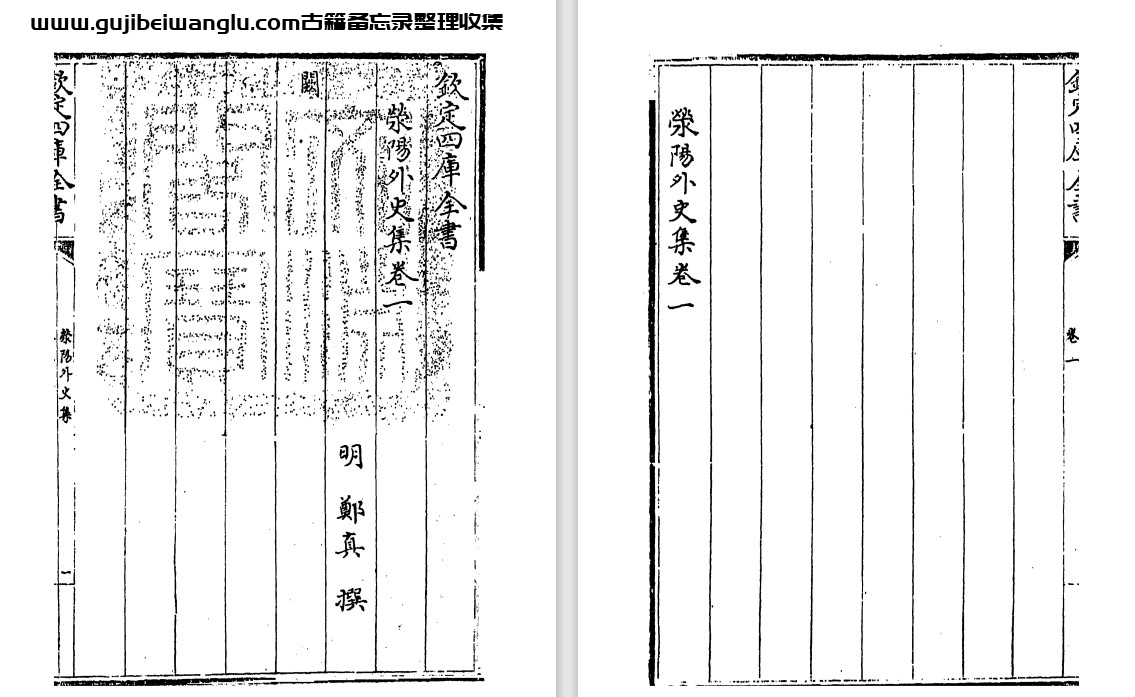 www.gujibeiwanglu.com古籍备忘录整理收集
欽定四庫全書
滎陽外史集卷一
明 鄭真 撰
闕
欽定四庫全書
滎陽外史集
一
欽定四庫全書
卷一
滎陽外史集卷一